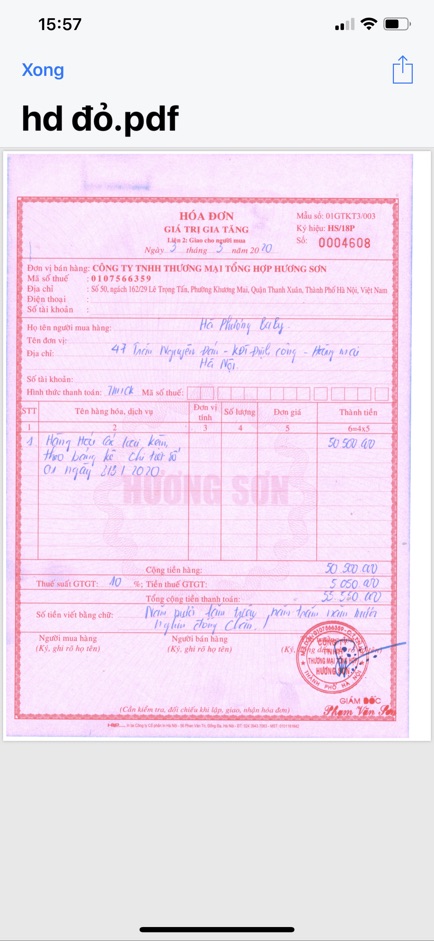 15:57
Xong
hd đỏ.pdf
HÓA ĐƠN
GIÁ TRỊ GIA TĂNG
Liên 2: Giao cho người mua
Ngày 3 tháng 3 năm 2020
Mẫu số: 01GTKT3/003
Ký hiệu: HS/18P
Số: 0004608
Đơn vị bán hàng: CÔNG TY TNHH THƯƠNG MẠI TỔNG HỢP HƯƠNG SƠN
Mã số thuế : 0107566359
Địa chỉ : Số 50, ngách 162/29 Lê Trọng Tấn, Phường Khương Mai, Quận Thanh Xuân, Thành Phố Hà Nội, Việt Nam
Điện thoại :
Số tài khoản :
Họ tên người mua hàng: Hà Phượng
Tên đơn vị:
Địa chỉ: 47 Trần Nguyên Đán - KĐT Định Công - Hoàng Mai
Hà Nội.
Số tài khoản:
Hình thức thanh toán: TM/CK Mã số thuế:
STT Tên hàng hóa, dịch vụ Đơn vị tính Số lượng Đơn giá Thành tiền
1 2 3 4 5 6=4x5
1 Hàng Hóa có kèm 50 500 000
theo bảng kê chi tiết số
01 ngày 2020
HƯƠNG SƠN
Cộng tiền hàng: 50 500 000
Thuế suất GTGT: 10 %; Tiền thuế GTGT: 5 050 000
Tổng cộng tiền thanh toán: 55 550 000
Số tiền viết bằng chữ: Năm mươi lăm triệu, năm trăm năm mươi
Nghìn đồng chẵn.
Người mua hàng Người bán hàng
(Ký, ghi rõ họ tên) (Ký, ghi rõ họ tên) (Ký,
CÔNG TY
TNHH
THƯƠNG MẠI TỔNG HỢP
HƯƠNG SƠN
THÀNH PHỐ HÀ NỘI
GIÁM ĐỐC
Phạm Văn
(Cần kiểm tra, đối chiếu khi lập, giao, nhận hóa đơn)